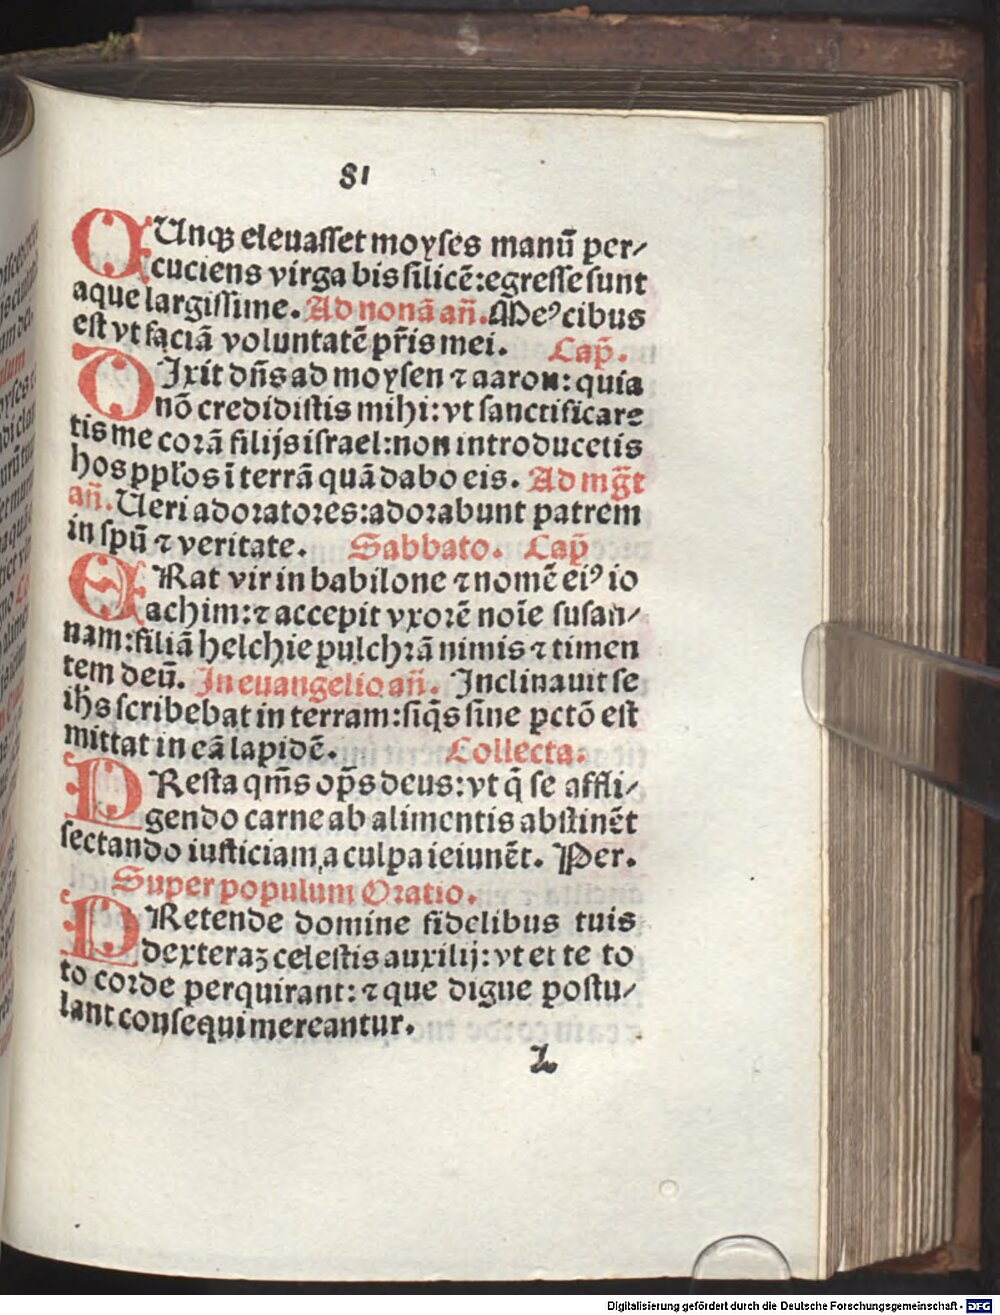 81
QUnqꝫ eleuasset moyses manū per/
cuciens virga bis silicē:egresse sunt
aque largissime. Ad nonā an̄. Meꝰ cibus
est vt faciā voluntatē pr̄is mei. Cap̄.
DIxit dn̄s ad moysen ⁊ aaron: quia
nō credidistis mihi: vt sanctificare
tis me corā filijs israel:non introducetis
hos ppl̄os ī terrā quā dabo eis. Ad mḡt
an̄. Ueri adoratores:adorabunt patrem
in spū ⁊ veritate. Sabbato. Cap̄
ERat vir in babilone ⁊ nomē eiꝰ io
achim:⁊ accepit vxorē noīe susan/
nam:filiā helchie pulchrā nimis ⁊ timen
tem deū. In euangelio an̄. Inclinauit se
ih̄s scribebat in terram:siq̄s sine pctō est
mittat in eā lapidē. Collecta.
PResta qm̄s op̄s deus: vt q̄ se affli/
gendo carne ab alimentis abstinēt
sectando iusticiam,a culpa ieiunēt. Per.
Super populum Oratio.
PRetende domine fidelibus tuis
dexteraꝫ celestis auxilij: vt et te to
to corde perquirant: ⁊ que digne postu/
lant consequi mereantur.
L
Digitalisierung gefördert durch die Deutsche Forschungsgemeinschaft - DFG